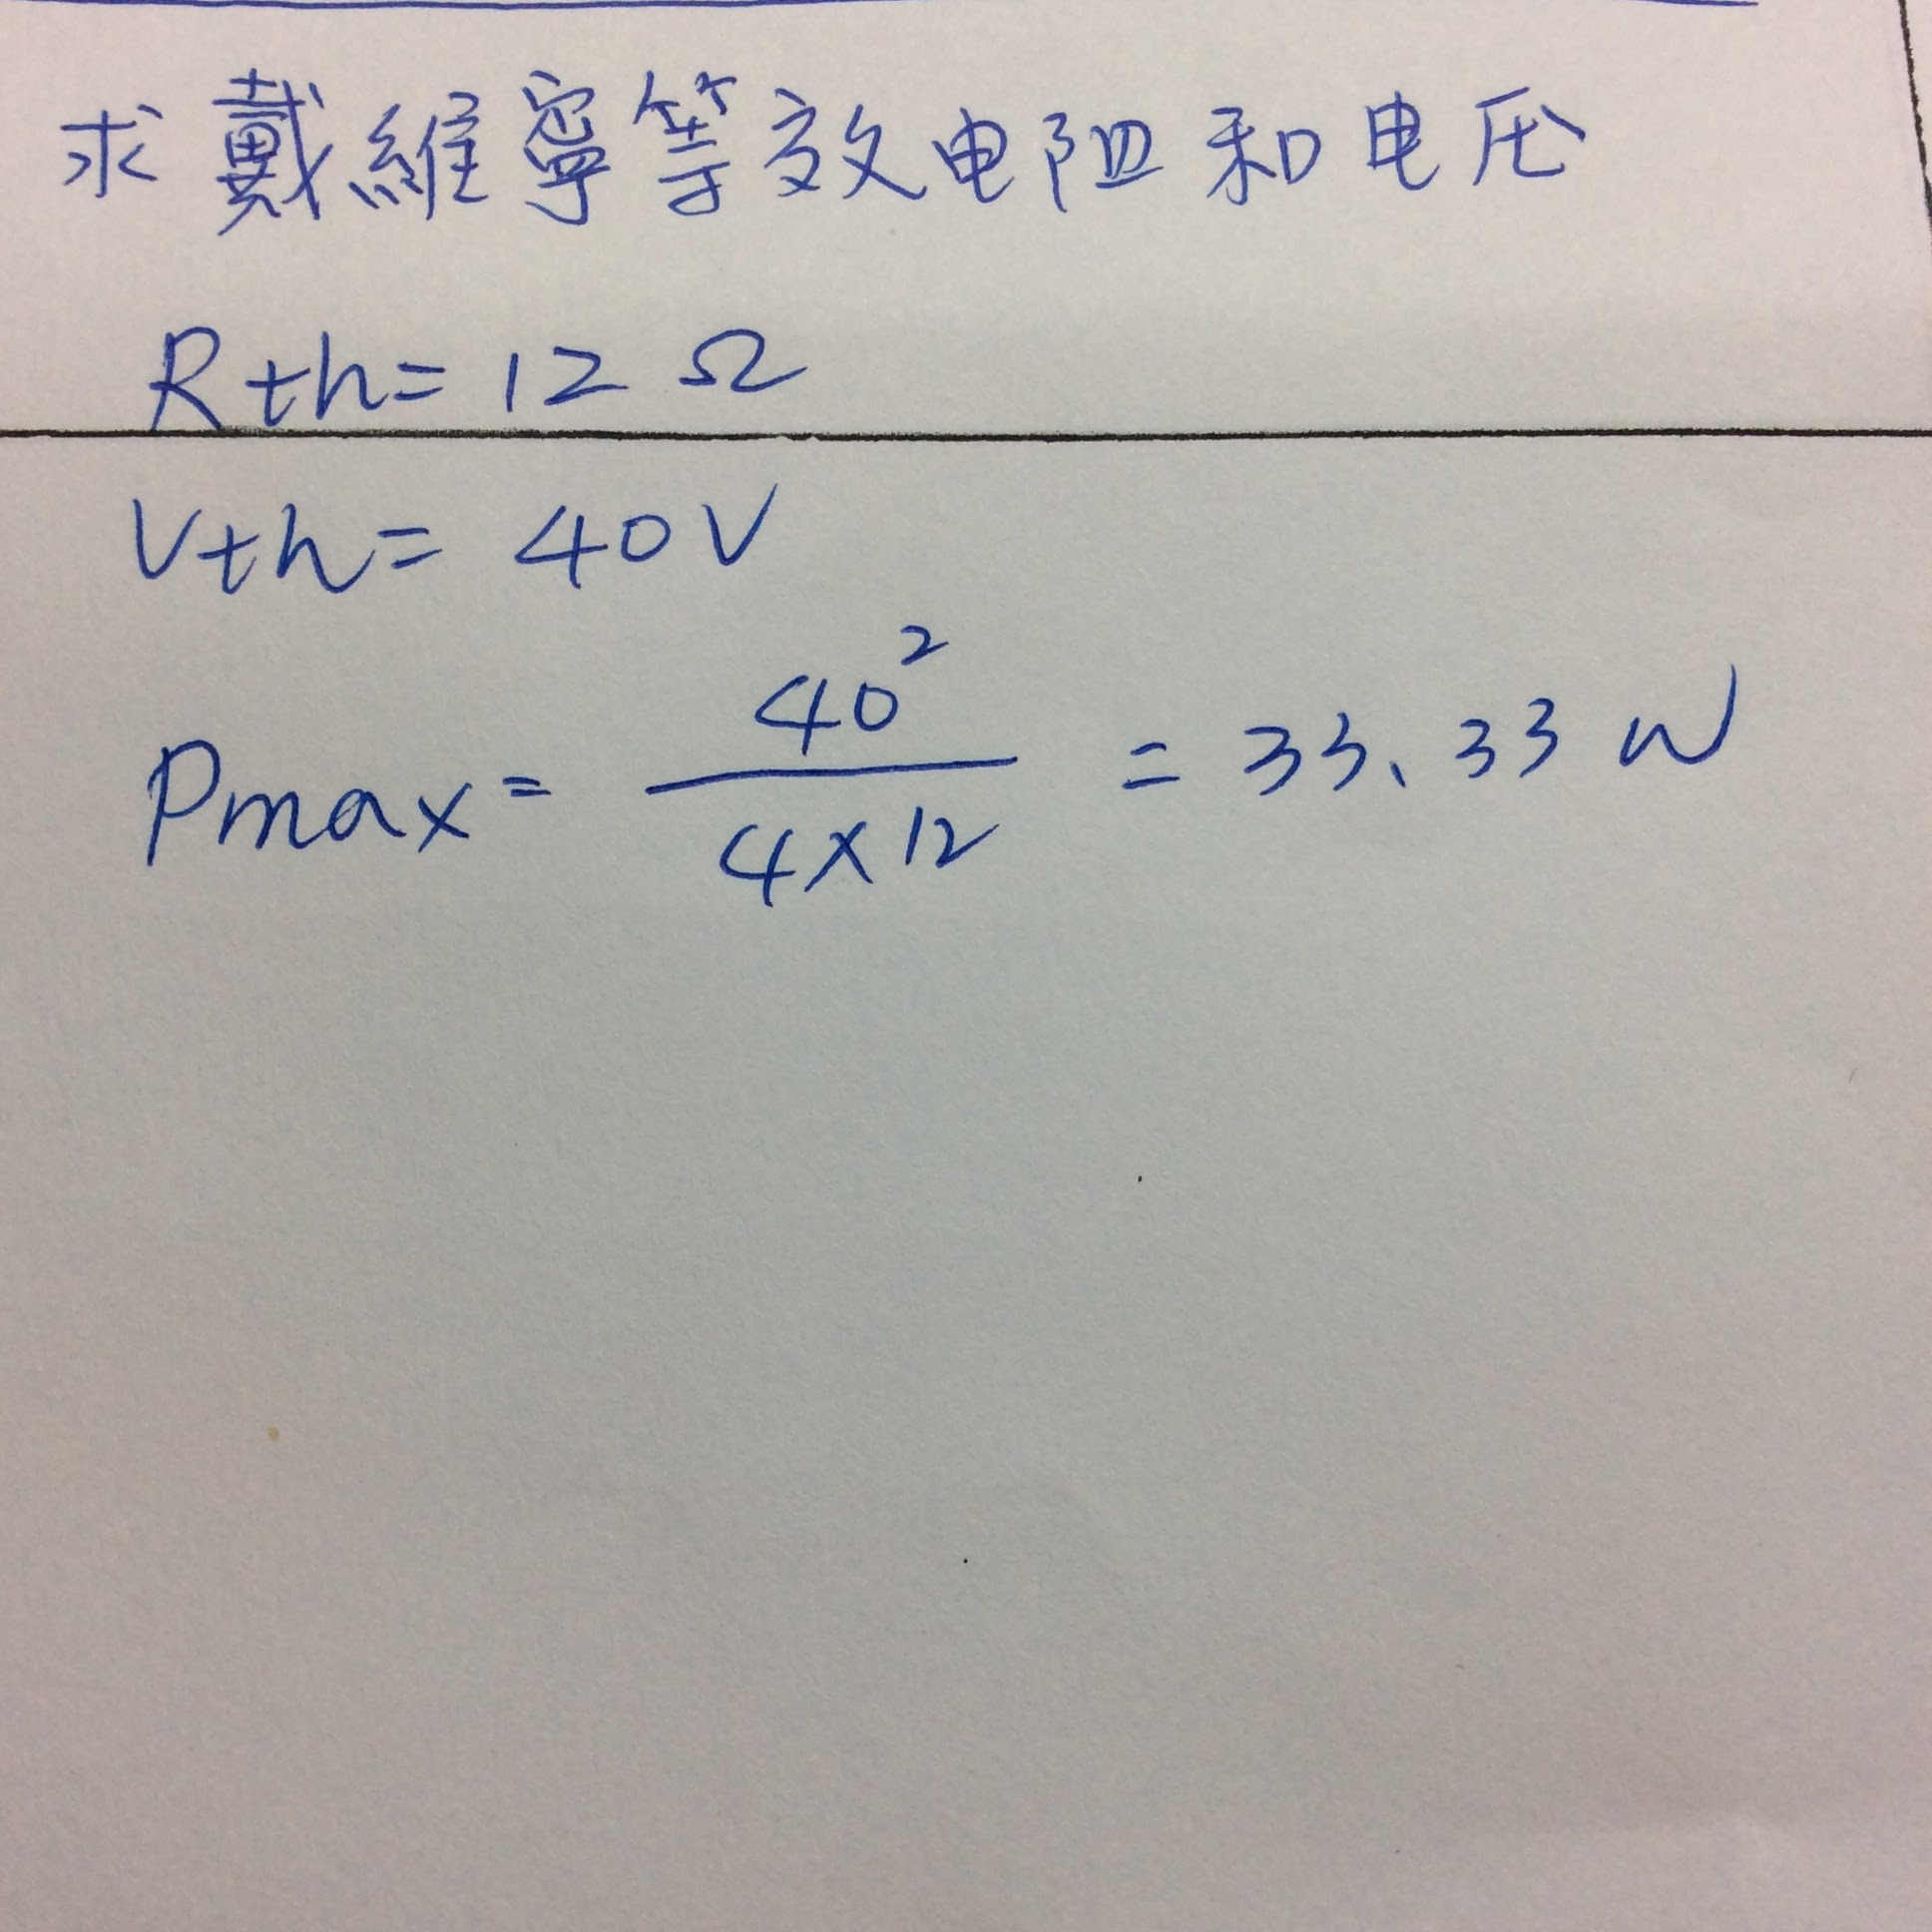 求戴維寧等效电阻和电压
Rth= 12 Ω
Vth= 40V
Pmax = 40² / 4×12 = 33.33 W